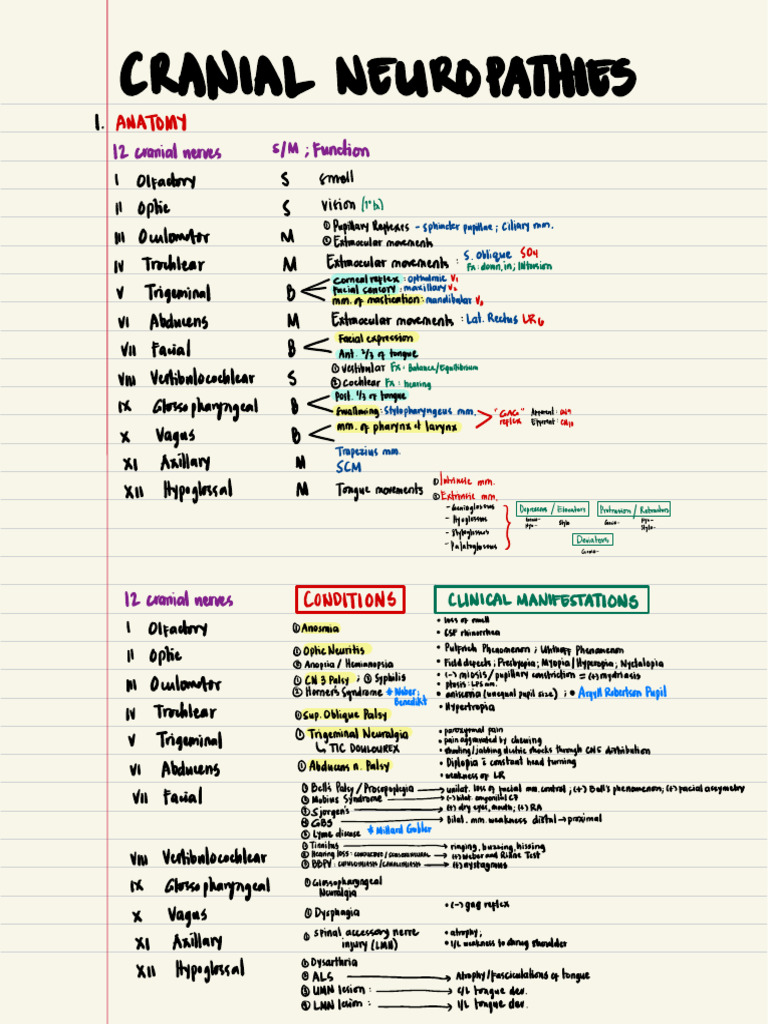 CRANIAL NEUROPATHIES
1. ANATOMY
12 cranial nerves S/M ; Function
I Olfactory S smell
II Optic S vision (1° fx)
III Oculomotor M ① Pupillary Reflexes - sphincter pupillae ; Ciliary mm.
② Extraocular movements
IV Trochlear M Extraocular movements : S. oblique SO4
Fx: down, in ; Intorsion
V Trigeminal B Corneal reflex : opthalmic V1
Facial sensory : maxillary V2
mm. of mastication : mandibular V3
VI Abducens M Extraocular movements : Lat. Rectus LR6
VII Facial B Facial expression
Ant. 2/3 of tongue
VIII Vestibulocochlear S ① Vestibular Fx: Balance/Equilibrium
② Cochlear Fx: hearing
IX Glossopharyngeal B Post. 1/3 of tongue
Swallowing : Stylopharyngeus mm.
"GAG" reflex Afferent: CN9
Efferent: CN10
X Vagus B mm. of pharynx & larynx
XI Axillary M Trapezius mm.
SCM
XII Hypoglossal M Tongue movements ① Intrinsic mm.
② Extrinsic mm.
- Genioglossus
- Hyoglossus
- Styloglossus
- Palatoglossus
Depressors / Elevators
Genio- Stylo
Hyo-
Protrusion / Retractors
Genio- Hyo-
Stylo-
Deviators
Genio-
12 cranial nerves CONDITIONS CLINICAL MANIFESTATIONS
I Olfactory ① Anosmia • loss of smell
• CSF rhinorrhea
II Optic ① Optic Neuritis • Pulfrich Phenomenon ; Uhthoff Phenomenon
② Anopsia / Hemianopsia • Field defects ; Presbyopia ; Myopia / Hyperopia ; Nyctalopia
III Oculomotor ① CN 3 Palsy ; ③ Syphilis • (-) miosis / pupillary constriction = (+) mydriasis
• ptosis : LPS mm.
② Horner's Syndrome * Weber ; Benedikt • anisocoria (unequal pupil size) ; • Argyll Robertson Pupil
IV Trochlear ① Sup. Oblique Palsy • Hypertropia
V Trigeminal ① Trigeminal Neuralgia • paroxysmal pain
↳ TIC DOULOUREX • pain aggravated by chewing
• shooting/jabbing electric shocks through CN5 distribution
VI Abducens ① Abducens n. Palsy • Diplopia c̄ constant head turning
• weakness of LR
VII Facial ① Bell's Palsy / Prosopoplegia → unilat. loss of facial mm. control ; (+) Bell's phenomenon ; (+) facial assymetry
② Mobius Syndrome → (+) bilat. congenital CP
③ Sjorgen's → (+) dry eyes, mouth ; (+) RA
④ GBS → Bilat. mm. weakness distal → proximal
⑤ Lyme disease * Millard Gubler
VIII Vestibulocochlear ① Tinnitus → ringing, buzzing, hissing
② Hearing loss : conductive / sensorineural → (+) Weber and Rinne Test
③ BPPV : cupulolithiasis / canalithiasis → (+) nystagmus
IX Glossopharyngeal ① Glossopharyngeal
Neuralgia
X Vagus ① Dysphagia • (-) gag reflex
XI Axillary ① spinal accessory nerve
injury (LMN) • atrophy ;
• I/L weakness to shrug shoulder
XII Hypoglossal ① Dysarthria
② ALS → Atrophy / Fasciculations of tongue
③ UMN lesion : → C/L tongue dev.
④ LMN lesion : → I/L tongue dev.